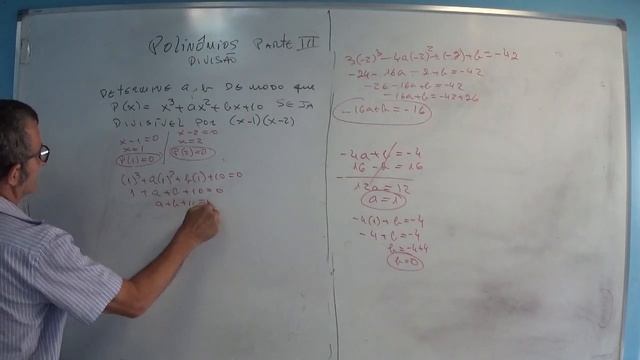 POLINÔMIOS PARTE III
DIVISÃO
DETERMINE a, b DE MODO QUE
P(x) = x³+ax²+bx+10 SEJA
DIVISÍVEL POR (x-1)(x-2)
x-1=0 / x-2=0
x=1 / x=2
P(1)=0 / P(2)=0
(1)³+a(1)²+b(1)+10=0
1+a+b+10=0
a+b+11=
3(-2)³-4a(-2)²+(-2)+b=-42
-24-16a-2+b=-42
-26-16a+b=-42
-16a+b=-42+26
-16a+b=-16
-4a+b=-4
16-b=16
12a=12
a=1
-4(1)+b=-4
-4+b=-4
b=-4+4
b=0